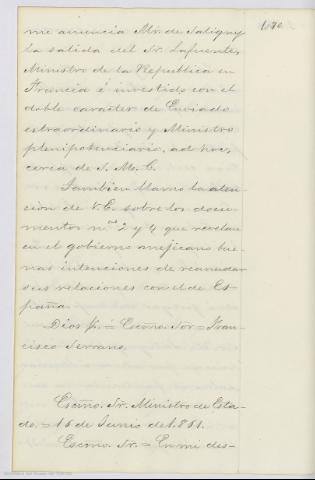 170
me anuncia Mr. de Saligny
la salida del Sr. Lafuente,
Ministro de la Republica en
Francia é investido con el
doble caracter de Enviado
extraordinario y Ministro
plenipotenciario, ad hoc,
cerca de S. M. C.
Tambien llamo la aten
cion de V. E. sobre los docu
mentos n.os 2 y 4 que revelan
en el gobierno mejicano bue
nas intenciones de reanudar
sus relaciones con el de Es-
paña.
Dios &.a = Escmo. Sor = Fran
cisco Serrano
Escmo. Sr. Ministro de Esta-
do = 16 de Junio de 1861.
Escmo. Sr. = En mi des-